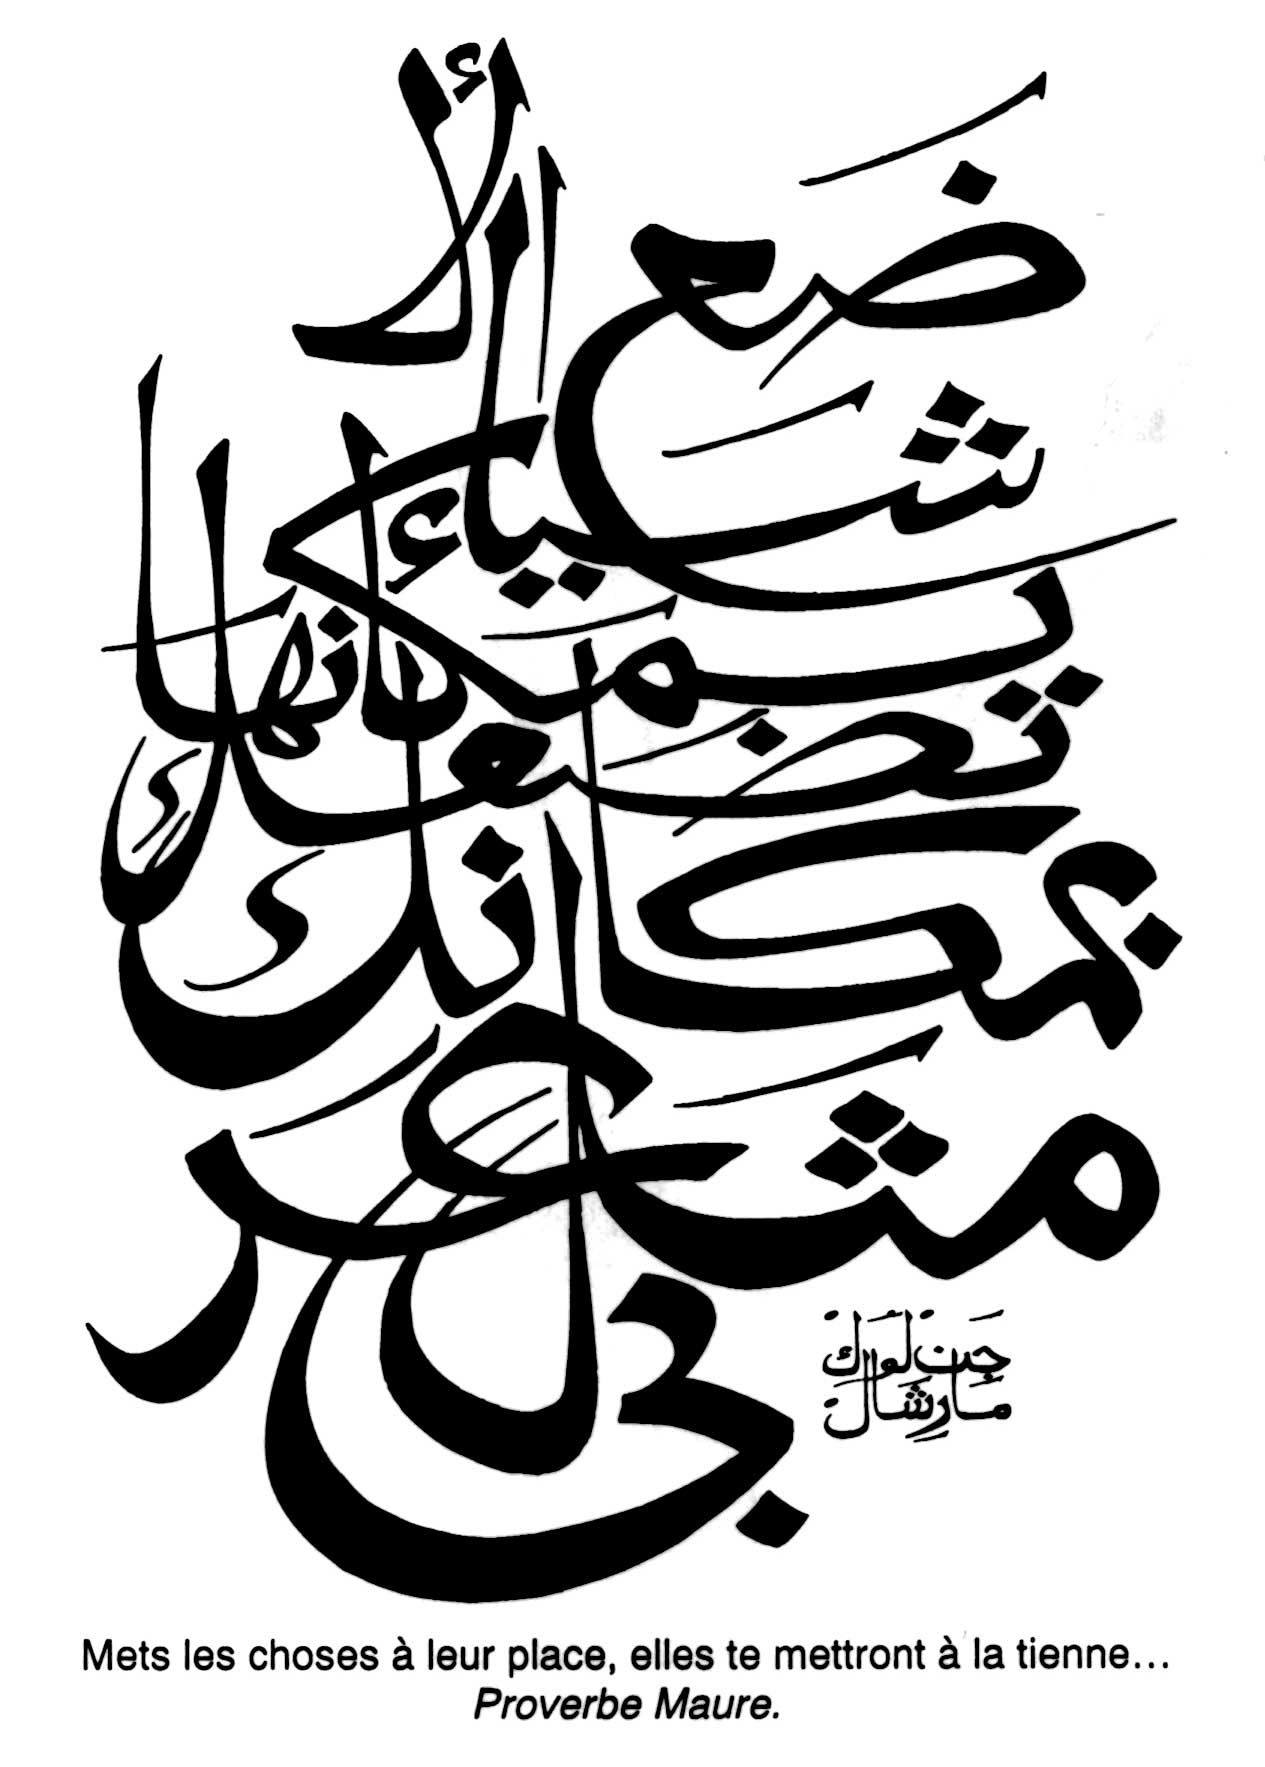 ضَع الأشياء
بمكانها
تَضَعك
بمكانك
مَثَل
مغربى
جَن لُوك
مارشال
Mets les choses à leur place, elles te mettront à la tienne...
Proverbe Maure.